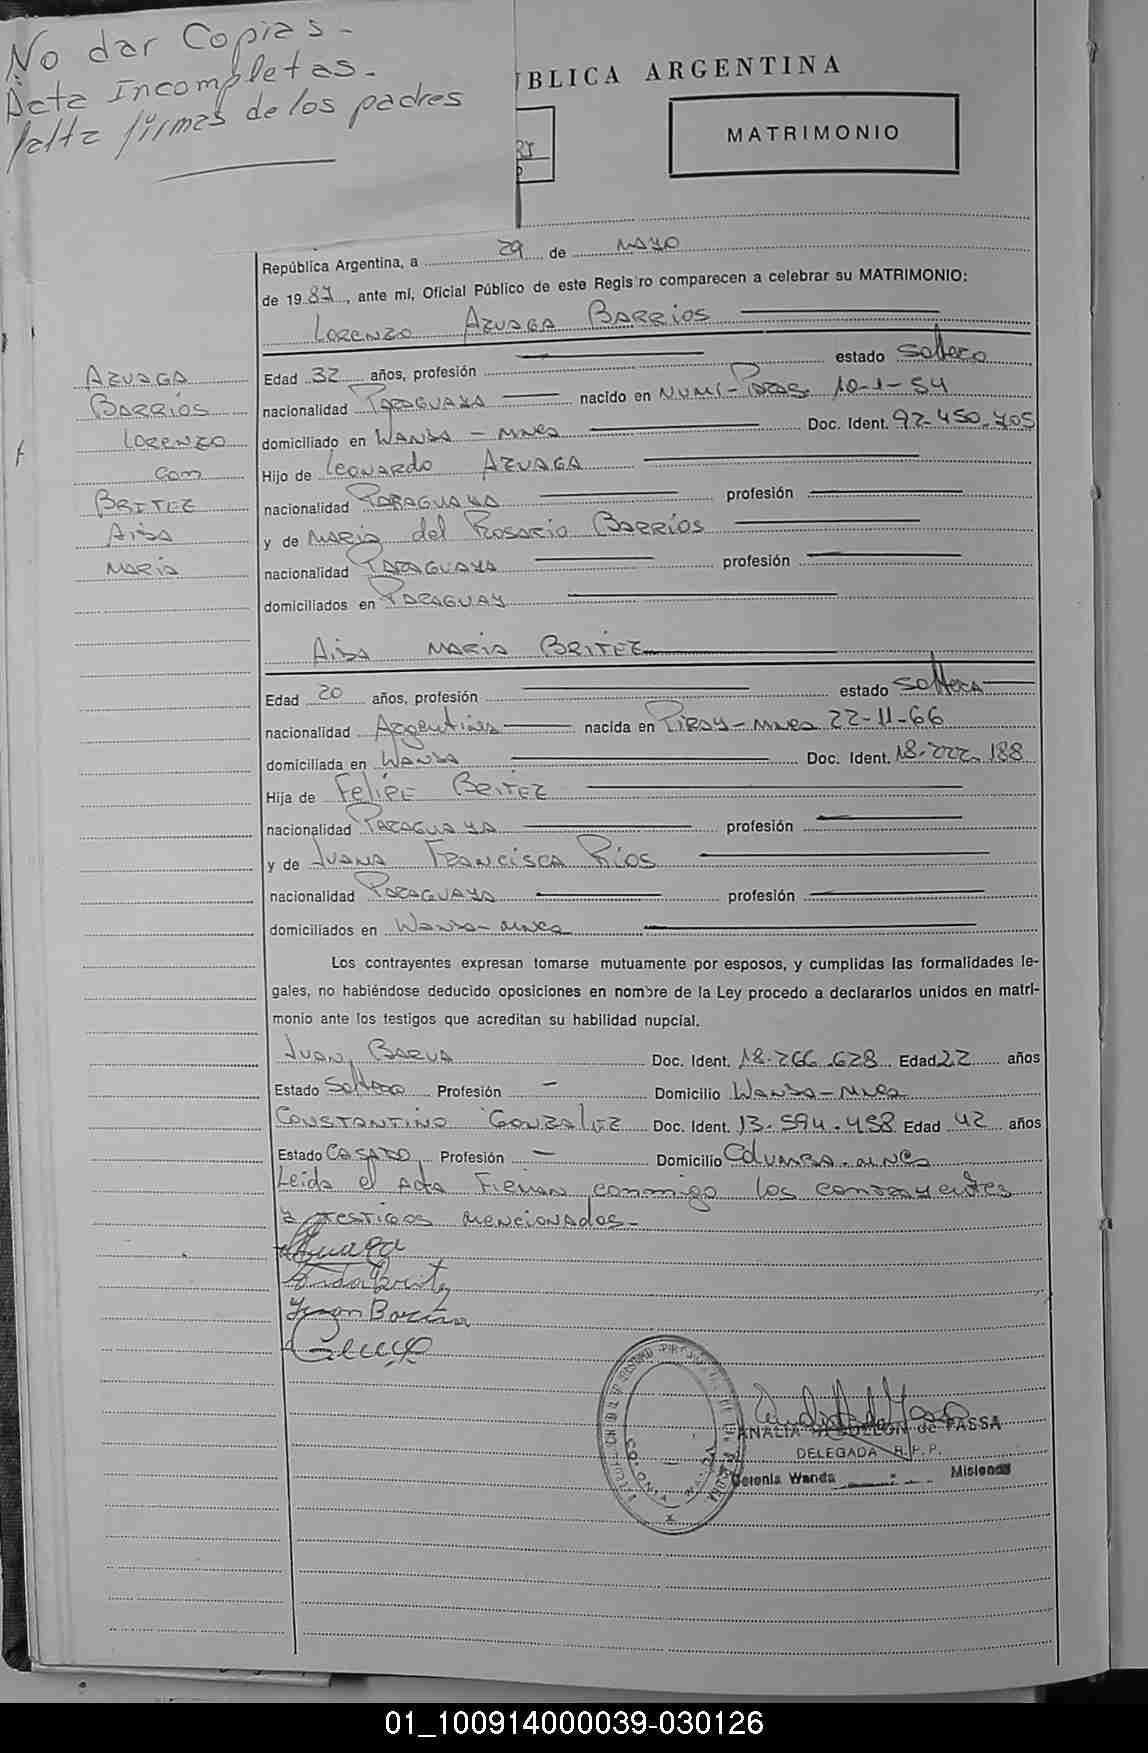 No dar Copias.-
Acta Incompletas.-
falta firmas de los padres
BLICA ARGENTINA
MATRIMONIO
República Argentina, a 29 de MAYO
de 1987, ante mi, Oficial Público de este Registro comparecen a celebrar su MATRIMONIO:
LORENZO AZUAGA BARRIOS
Edad 32 años, profesión — estado soltero
nacionalidad PARAGUAYA nacido en NUMI-PARAG. 10-1-54
domiciliado en WANDA - MNES Doc. Ident. 92-450.705
Hijo de LEONARDO AZUAGA
nacionalidad PARAGUAYA profesión —
y de MARIA del ROSARIO BARRIOS
nacionalidad PARAGUAYA profesión —
domiciliados en PARAGUAY
AZUAGA
BARRIOS
LORENZO
con
BRITEZ
AIDA
MARIA
AIDA MARIA BRITEZ
Edad 20 años, profesión — estado soltera
nacionalidad Argentina nacida en PIRAY-MNES 22-11-66
domiciliada en WANDA Doc. Ident. 18.222.188
Hija de FELIPE BRITEZ
nacionalidad PARAGUAYA profesión —
y de JUANA FRANCISCA RIOS
nacionalidad PARAGUAYA profesión —
domiciliados en WANDA-MNES
Los contrayentes expresan tomarse mutuamente por esposos, y cumplidas las formalidades le-
gales, no habiéndose deducido oposiciones en nombre de la Ley procedo a declararlos unidos en matri-
monio ante los testigos que acreditan su habilidad nupcial.
JUAN BARUA Doc. Ident. 18.266.628 Edad 22 años
Estado Soltero Profesión — Domicilio WANDA-MNES
CONSTANTINO GONZALEZ Doc. Ident. 13.594.458 Edad 42 años
Estado CASADO Profesión — Domicilio COL. WANDA-MNES
Leida el Acta FIRMAN conmigo los contrayentes
y TESTIGOS MENCIONADOS-
Azuaga
Aida Britez
Juan Barua
de FASSA
DELEGADA R.P.P.
Colonia Wanda Misiones
01_100914000039-030126